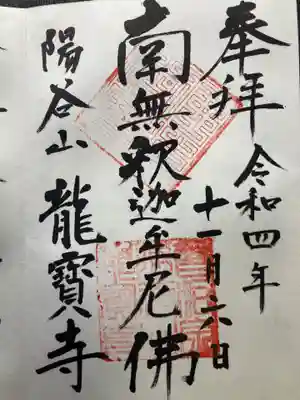 奉拝
令和四年
十一月六日
南無釈迦牟尼佛
陽谷山
龍寶寺